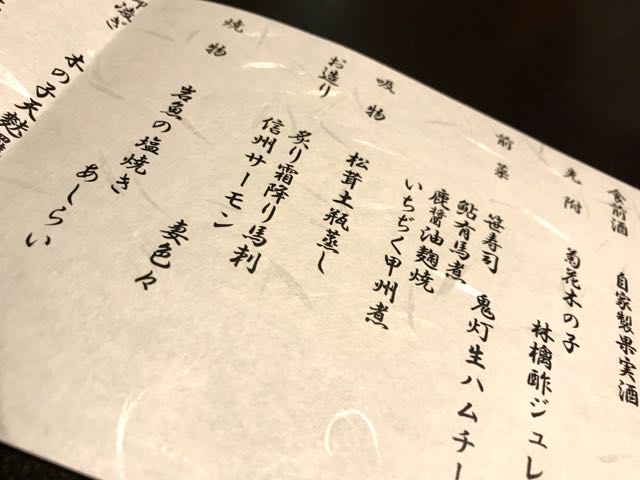 食前酒
自家製果実酒
先附
菊花木の子
林檎酢ジュレ
前菜
笹寿司
鬼灯生ハムチー
鮎有馬煮
鹿醤油麹焼
いちぢく甲州煮
吸物
松茸土瓶蒸し
お造り
炙り霜降り馬刺
信州サーモン
妻色々
焼物
岩魚の塩焼き
あしらい
木の子天麩羅